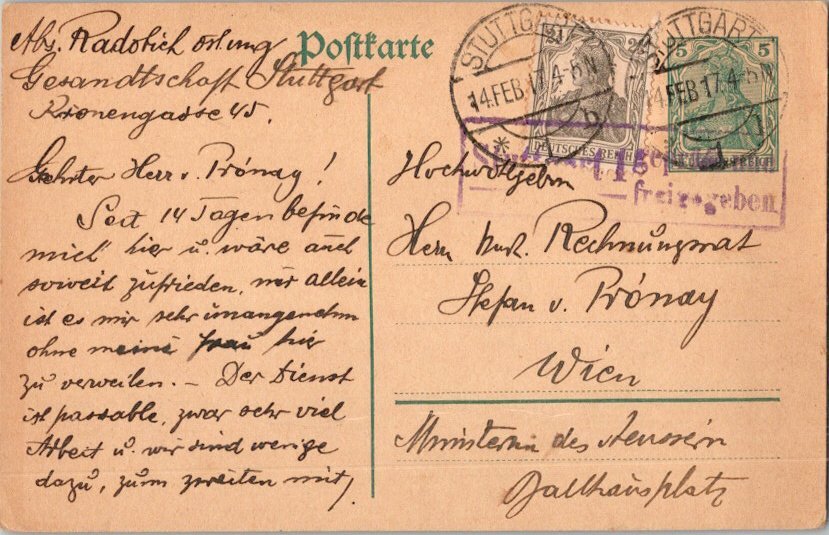 Abs. Radobich öst. ung
Gesandtschaft Stuttgart
Kronengasse 45.
Postkarte
STUTTGART
14.FEB.17.4-5N
* 1 b
2½ 2½
DEUTSCHES REICH
STUTTGART
14.FEB.17.4-5N
1
5 5
REICH
freigegeben
Geehrter Herr v. Prónay!
Seit 14 Tagen befinde
mich hier u. wäre auch
soweit zufrieden, nur allein
ist es mir sehr unangenehm
ohne meine Frau hier
zu verweilen. – Der Dienst
ist passable, zwar sehr viel
Arbeit u. wir sind wenige
dazu, zum zweiten mit,
Hochwohlgeborn
Herrn Rechnungsrat
Stefan v. Prónay
Wien
Ministerium des Aeussern
Ballhausplatz